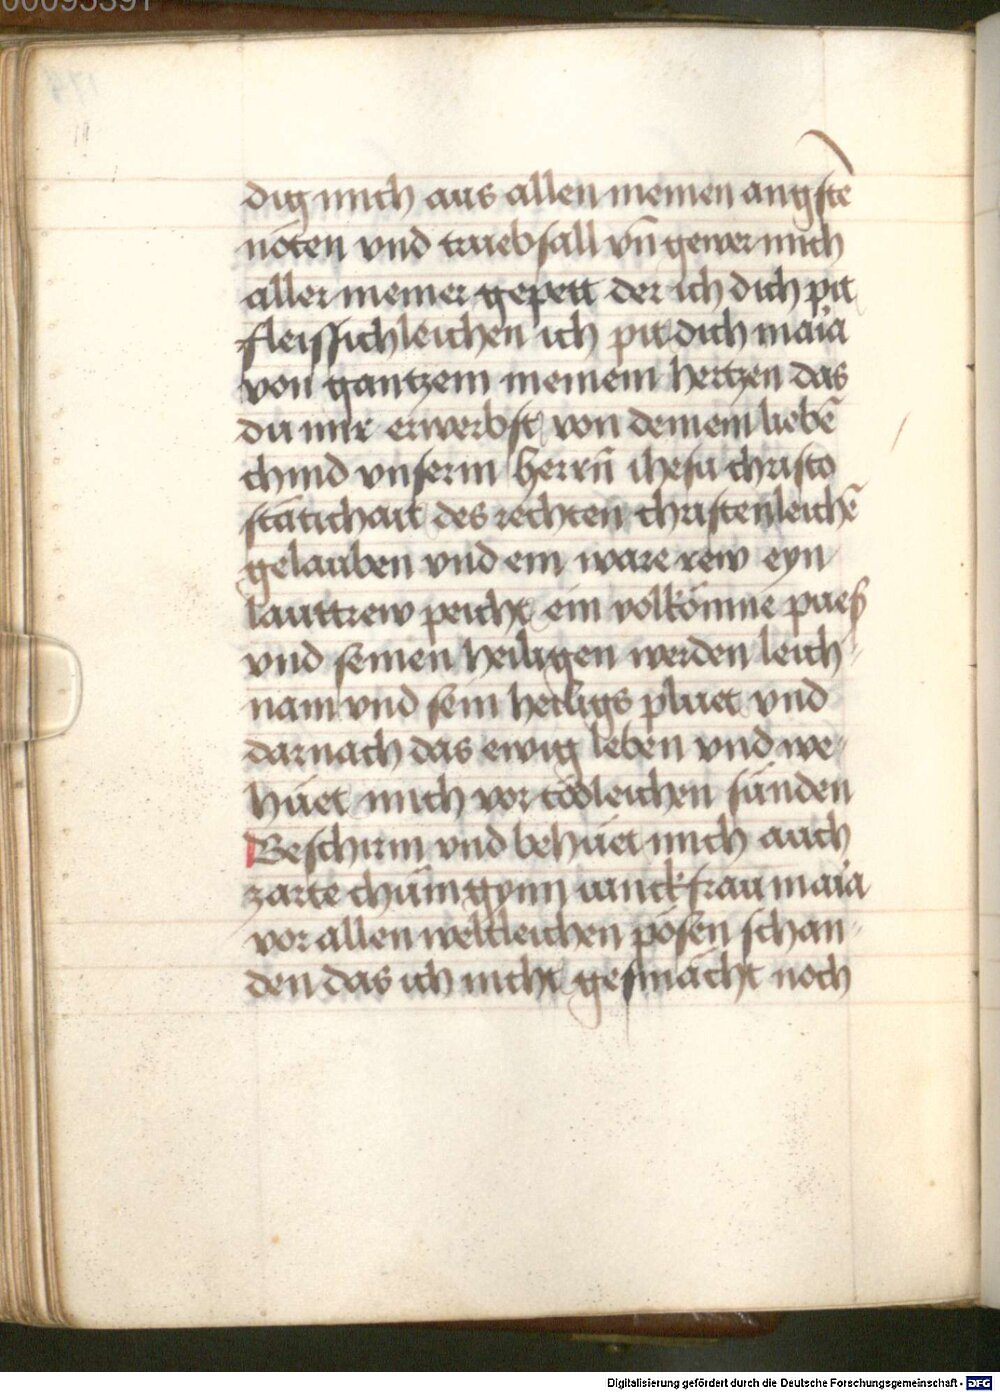 00095391
dig mich aus allen meinen angstē
nöten vnd trüebsall vn̄ gewer mich
aller meiner gepett der ich dich pit
fleissichleichen ich pit dich maria
von gantzem meinem hertzen das
du mir erwerbst von deinem liebē
chind vnserm herrn̄ ihesu christo
stätichait des rechten christenleichē
gelauben vnd ein ware rew eyn
lauttrew peicht ein volkōmne pueß
vnd seinen heiligen werden leich-
nam vnd sein heiligs pluet vnd
darnach das ewig leben vnd we-
hüet mich vor tödleichen sünden
Beschirm vnd behüet mich auch
zarte chünigynn iunckfrau maria
vor allen weltleichen pösen schan-
den das ich nicht gesmächt noch
Digitalisierung gefördert durch die Deutsche Forschungsgemeinschaft - DFG